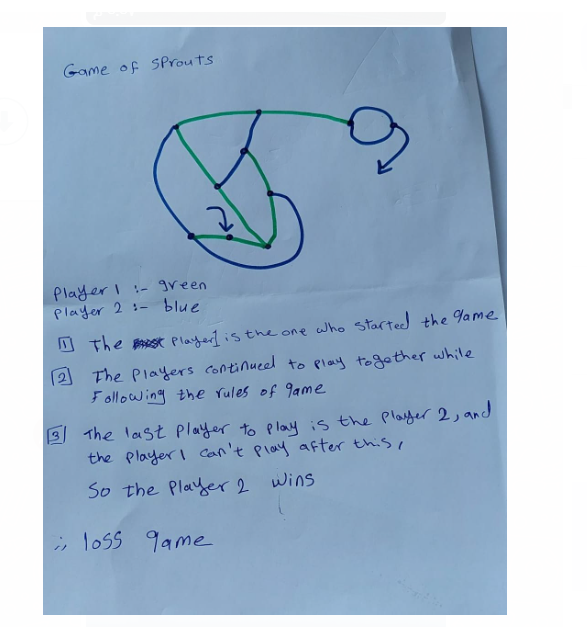 Game of Sprouts
Player 1 :- green
Player 2 :- blue
1 The Player1 is the one who started the game
2 The Players continued to play together while
Following the rules of game
3 The last Player to play is the Player 2, and
the Player 1 can't play after this,
So the Player 2 wins
∴ loss game